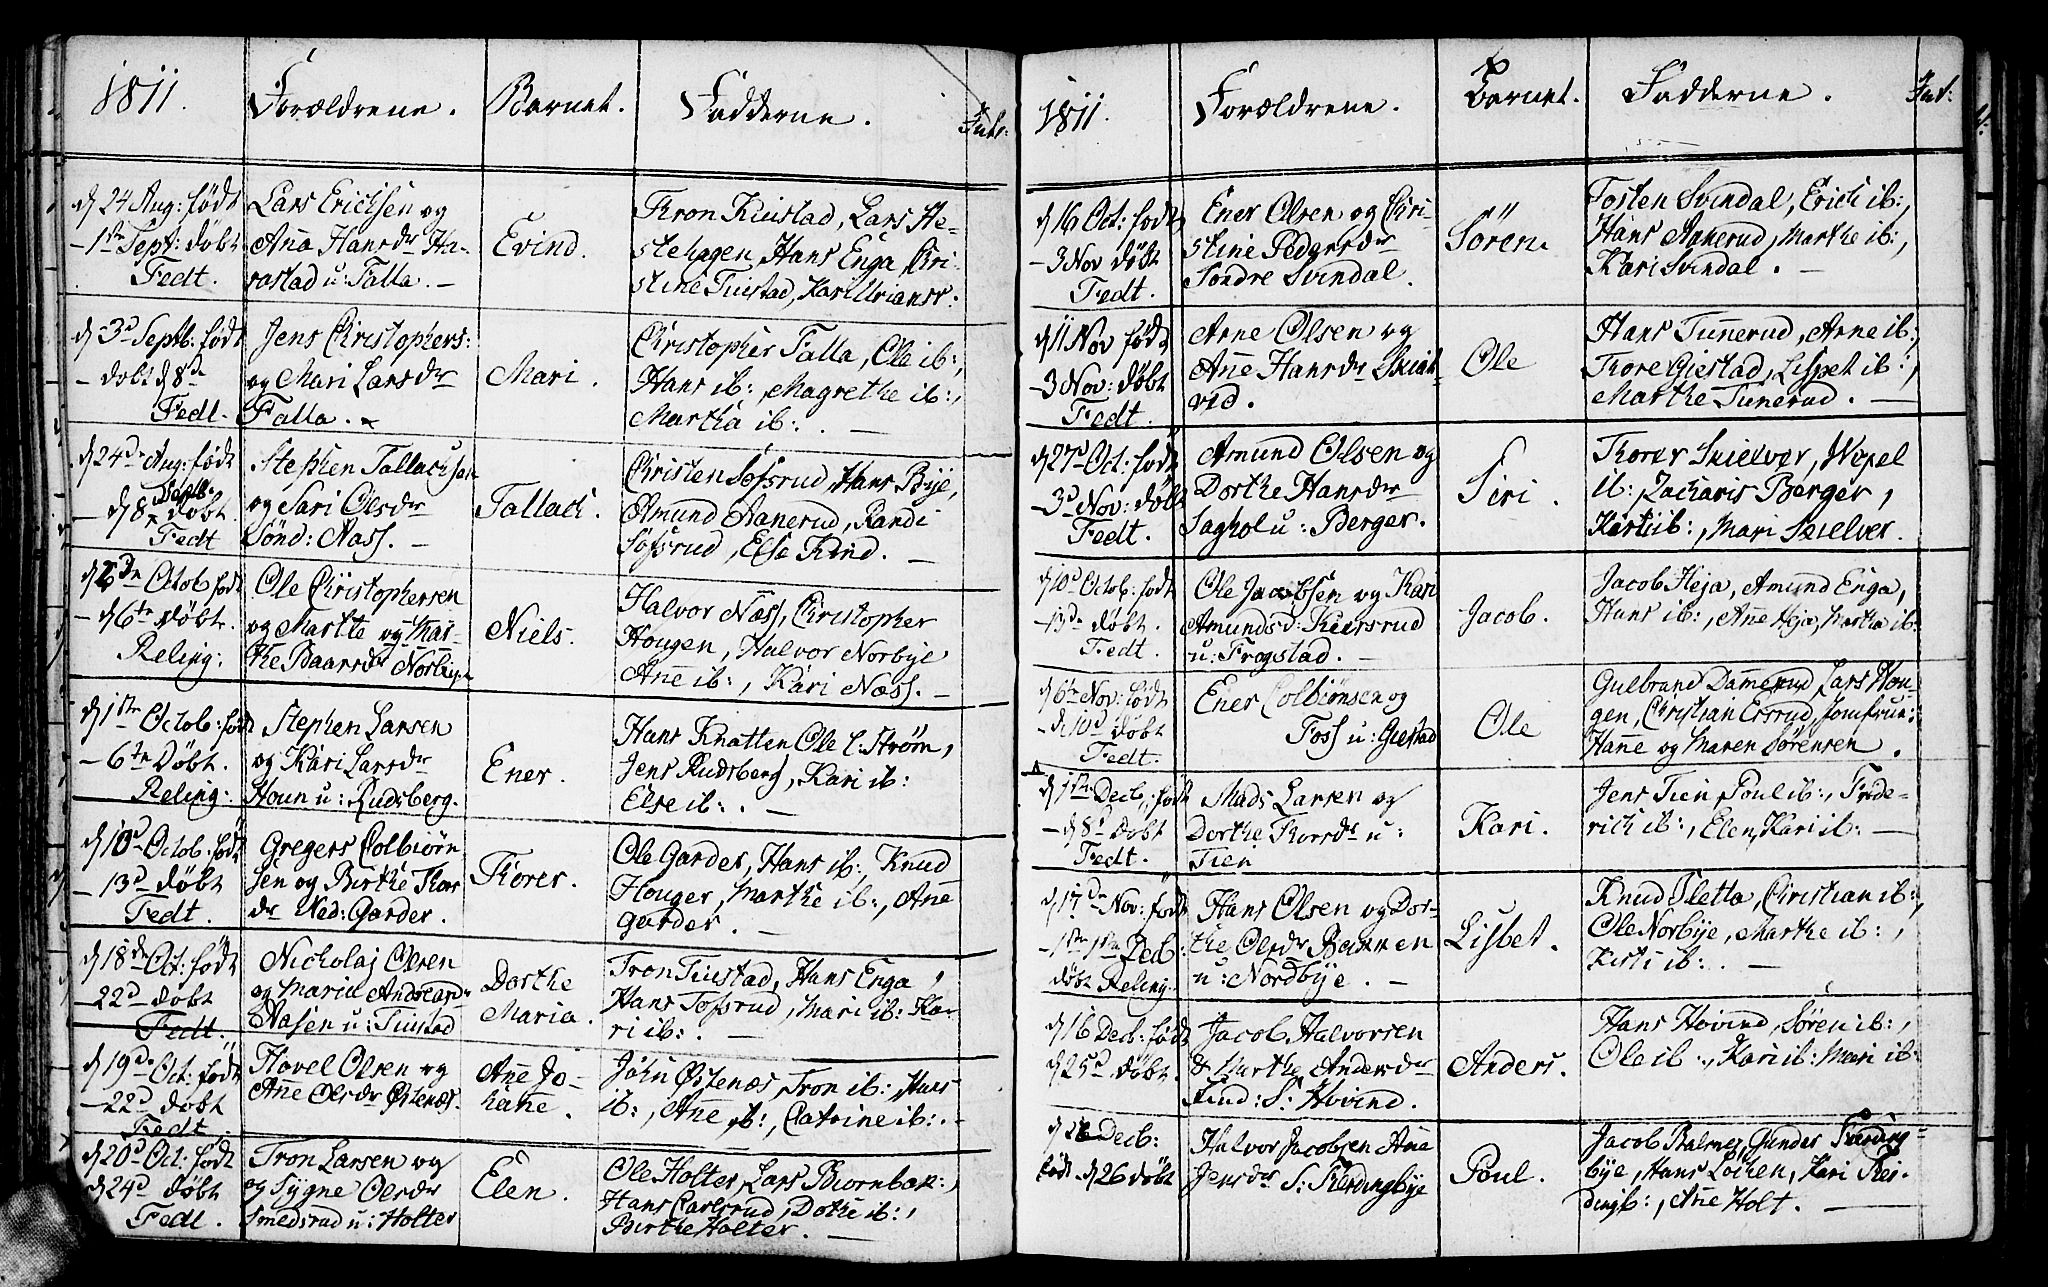 1811.
Forældrene.
Barnet.
Fadderne.
Int:
d 24 Aug: født
– 1ste Sept: døbt
Fedt.
Lars Erichsen og
Aña Hansdr Ha-
rastad u: Falla. –
Evind.
Thron Kiustad, Lars He-
stehagen, Hans Enga, Kri-
stine Tiustad, Kari Urianss:
d 3d Septb: født
– døbt d 8de
Fedt.
Jens Christophers:
og Mari Larsdr
Falla.
Mari.
Christopher Falla, Ole ib:,
Hans ib:, Magrethe ib:,
Martha ib: . –
d 24de Aug: født
– d 8 Septb. døbt
Fedt
Stephen Tallachsen
og Sari Olsdr
Sønd: Næss. –
Tallach.
Christen Sofsrud, Hans Bye,
Amund Aanerud, Randi
Sofsrud, Else Rind. –
Octob født
– d 6te døbt.
Reling:
Ole Christophersen
og Marthe og Mar-
the Baarsdr Norbye
Niels.
Halvor Næss, Christopher
Hougen, Halvor Norbye
Añe ib:, Kari Næss. –
d 1ste Octob: født
– 6te Døbt.
Reling:
Stephen Larsen
og Kari Larsdr
Houn u: Rudsberg.
Ener.
Hans Knatten Ole C: Strøm,
Jens Rudsberg, Kari ib:
Else ib: . –
d 10d Octob: født
– 13d døbt
Fedt.
Gregers Colbiørn
sen og Birthe Thors
dr Ned: Garder.
Thorer.
Ole Garder, Hans ib:, Knud
Houger, Marthe ib:, Añe
Garder. –
d 18de Oct: født
– 22d døbt
Fedt.
Nicholaj Olsen
og Maria Andreasdr
Aasen u: Tiustad
Dorthe
Maria.
Tron Tiustad, Hans Enga,
Hans Tofsrud, Mari ib: Ka-
ri ib: . –
d 19de Oct: født
– 22d døbt
Fedt,
Hovel Olsen og
Añe Olsdr Østenæs.
Añe Jo-
hañe.
John Østenæs, Tron ib:, Hans
ib:, Añe ib:, Catrine ib: . –
d 20d Oct: født
d 24d døbt
Fedt.
Tron Larsen og
og Sygne Olsdr
Smedsrud u: Holter
Elen.
Ole Holter, Lars Biørnbæk:,
Hans Carlsrud, Dothe ib:,
Birthe Holter. –
1811.
Forældrene.
Barnet.
Fadderne.
Int:
d 16 Oct: født
– 3 Nov døbt
Fedt.
Ener Olsen og Chri-
stine Pedersdr
Søndre Svindal.
Søren.
Tosten Svindal, Erich ib:,
Hans Aanerud, Marthe ib:,
Kari Svindal. –
d 11 Nov født
– 3 Nov: døbt
Fedt.
Arne Olsen og
Añe Hansdr
Ole
Hans Tunerud, Arne ib:,
Thore Giestad, Lispet ib:,
Marthe Tunerud. –
d 27d Oct: født
– 3d Nov: døbt
Fedt.
Amund Olsen og
Dorthe Hansdr
Saghol u: Berger.
Siri.
Thorer Skielver,
ib:, Zacharis Berger,
Kersti ib:, Mari Skielver.
d 10d Octob: født
– 13de døbt.
Fedt.
Ole Jacobsen og Kari
Amundsd: Kiersrud
u: Frogstad. –
Jacob.
Jacob Heja, Amund Enga,
Hans ib:, Añe Heja, Martha ib:
d 6te Nov: født
– d 10d døbt
Fedt.
Ener Colbiønsen og
Foss u: Giestad
Ole
Gulbrand Damerud, Lars Hou-
gen, Christian Ersrud, Jomfruer:
Hañe og Maren Sørensen.
d 1ste Decb: født
– d 8d Døbt
Fedt.
Mads Larsen og
Dorthe Thorsdr u:
Tien
Kari.
Jens Tien, Poul ib:, Frede-
rich ib:, Elen, Kari ib: –
d 17de Nov: født
– 1ste Decb:
døbt Reling.
Hans Olsen og Dor-
the Olsdr Barren
u: Nordbye. –
Lisbet.
Knud Sletta, Christian ib:,
Ole Norbye, Marthe ib:,
Kisti ib: . –
d 16 Decb: født
d 25d døbt.
Jacob Halvorsen
& Marthe Andersdr
Rud: S: Hovind.
Anders.
Hans Hovind, Søren ib:,
Ole ib:, Kari ib: Mari ib:
Decb:
født d 26 døbt
Halvor Jacobsen Aña
Jensdr S: Kierdingbye
Poul.
Jacob Balmer, Gunder Kierding-
bye, Hans Løken, Kari Kier-
dingb:, Añe Holt. –